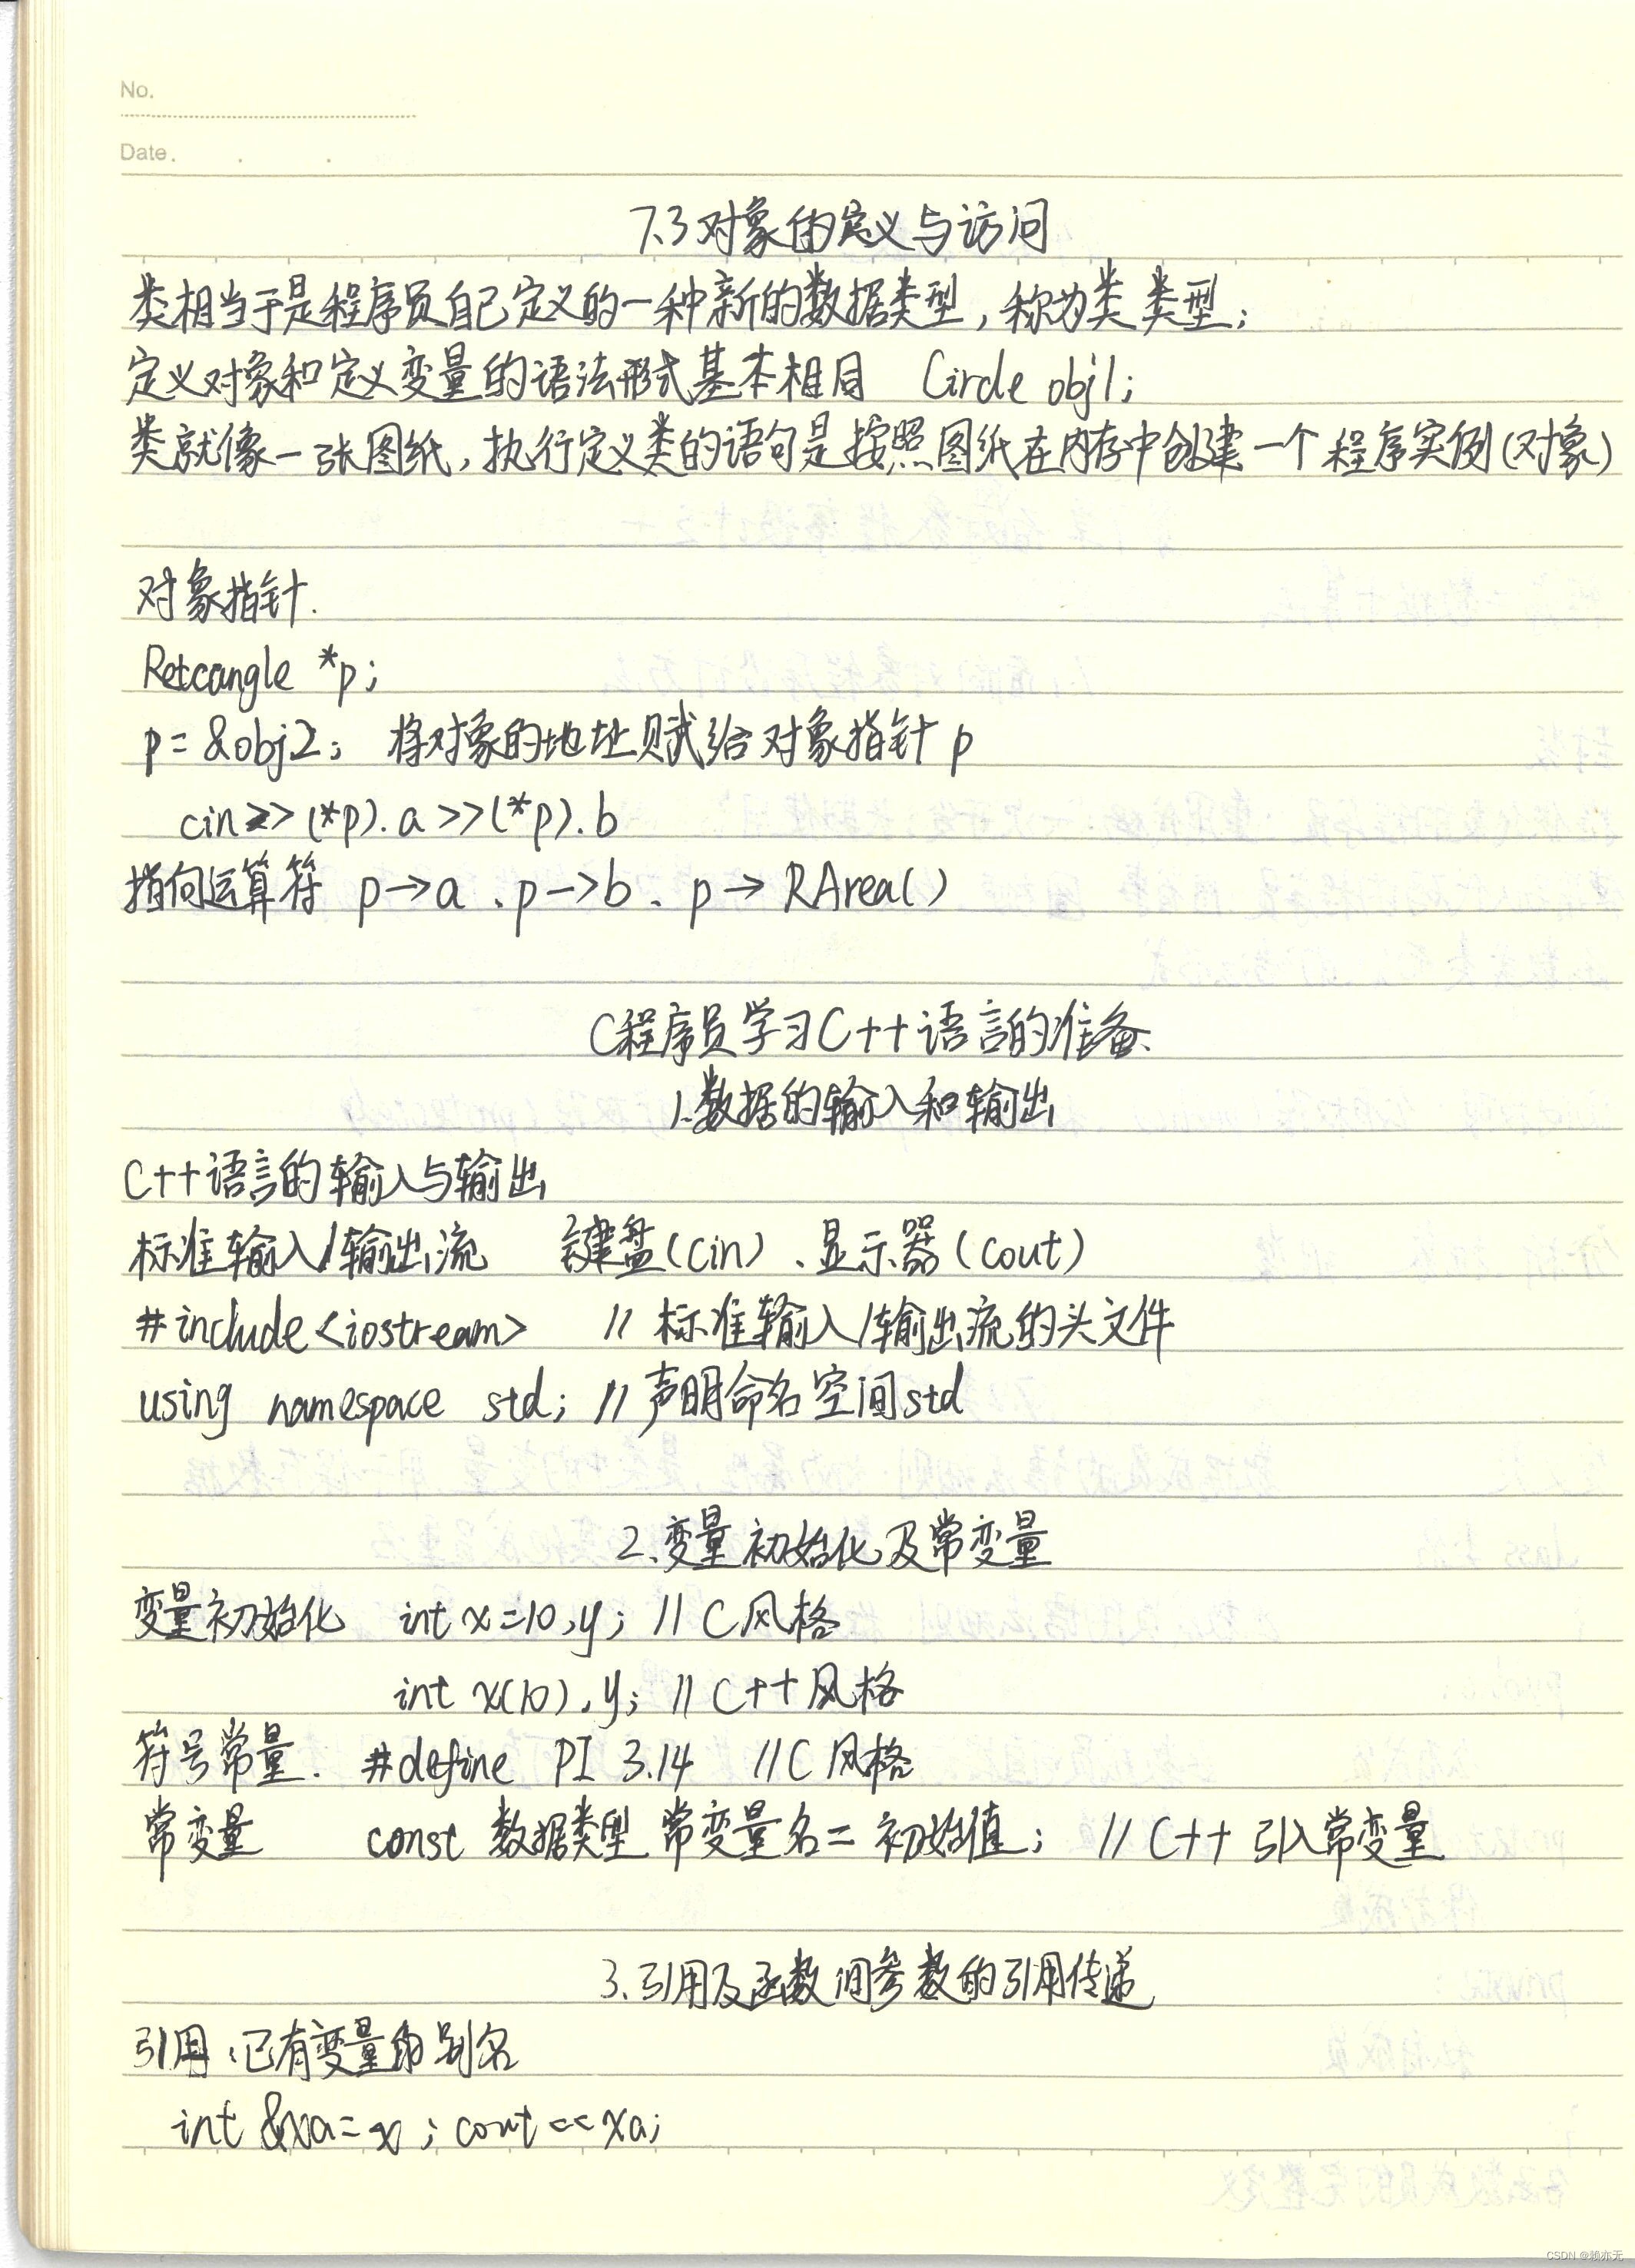 No.
Date.
7.3 对象的定义与访问
类相当于是程序员自己定义的一种新的数据类型，称为类类型；
定义对象和定义变量的语法形式基本相同 Circle obj1;
类就像一张图纸，执行定义类的语句是按照图纸在内存中创建一个程序实例(对象)
对象指针.
Retcangle *p;
p = &obj2; 将对象的地址赋给对象指针p
cin>>(*p).a>>(*p).b
指向运算符 p→a、p→b、p→RArea()
C程序员学习C++语言的准备
1.数据的输入和输出
C++语言的输入与输出
标准输入/输出流 键盘(cin)、显示器(cout)
#include<iostream> // 标准输入/输出流的头文件
using namespace std; // 声明命名空间std
2.变量初始化及常变量
变量初始化 int x=10,y; // C风格
int x(10),y; // C++风格
符号常量. #define PI 3.14 //C风格
常变量 const 数据类型 常变量名= 初始值; // C++ 引入常变量
3.引用及函数间参数的引用传递
引用、已有变量的别名
int &xa=x; cout<<xa;
CSDN @赖亦无